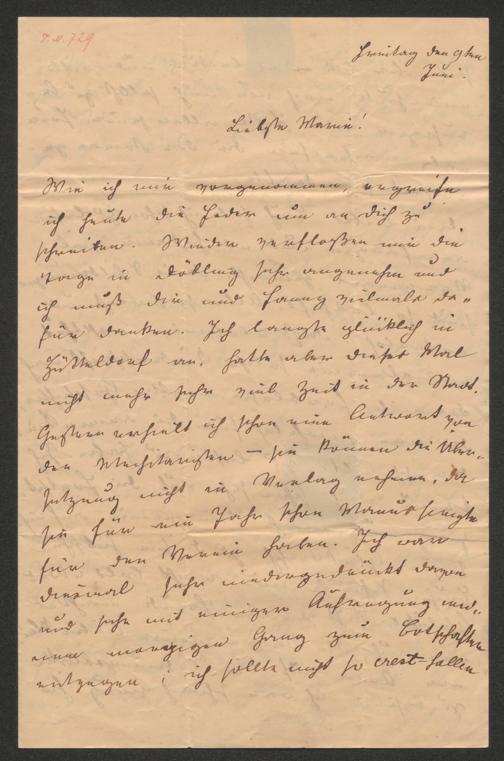 I.N. 729
Freitag den 9ten
Juni.
Liebste Marie!
Wie ich mir vorgenommen, ergreife
ich heute die Feder um an Dich zu
schreiben. Wieder verflossen mir die
Tage in Döbling sehr angenehm und
ich muß Dir und Fanny vielmals da-
für danken. Ich langte glücklich in
Hütteldorf an, hatte aber dieses Mal
nicht mehr sehr viel Zeit in der Stadt.
Gestern erhielt ich schon eine Antwort von
den Mechitaristen – sie können die Über-
setzung nicht in Verlag nehmen, da
sie für ein Jahr schon Manuscripte
für den Verein haben. Ich war
diesmal sehr niedergedrückt davon
und sehe mit einiger Aufregung
meinem morgigen Gang zum Botschafter
entgegen; ich sollte nicht so crest-fallen